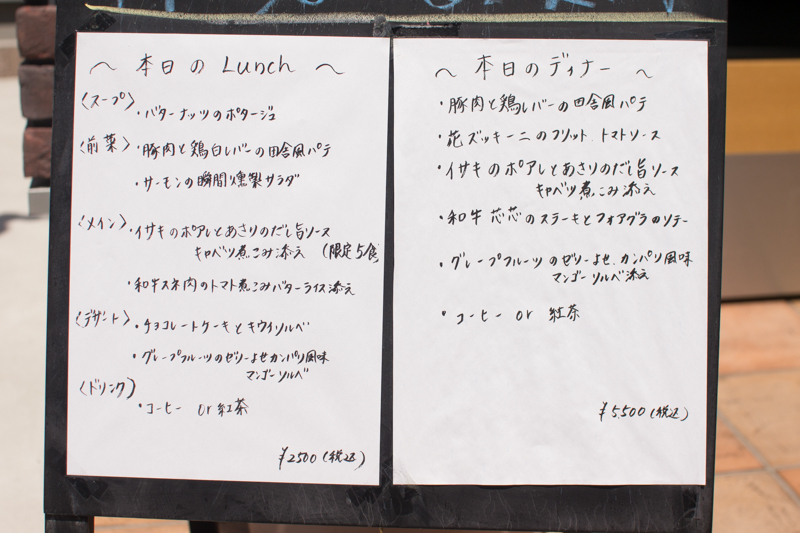 ～ 本日の Lunch ～
〈スープ〉
・バターナッツのポタージュ
〈前菜〉・豚肉と鶏白レバーの田舎風パテ
・サーモンの瞬間燻製サラダ
〈メイン〉・イサキのポアレとあさりのだし旨ソース
キャベツ煮こみ添え (限定5食)
・和牛スネ肉のトマト煮こみバターライス添え
〈デザート〉・チョコレートケーキとキウイソルベ
・グレープフルーツのゼリーよせカンパリ風味
マンゴーソルベ
〈ドリンク〉
・コーヒー or 紅茶
¥2500(税込)
～ 本日のディナー ～
・豚肉と鶏レバーの田舎風パテ
・花ズッキーニのフリット トマトソース
・イサキのポアレとあさりのだし旨ソース
キャベツ煮こみ添え
・和牛 芯芯のステーキとフォアグラのソテー
・グレープフルーツのゼリーよせ カンパリ風味
マンゴーソルベ添え
・コーヒー or 紅茶
¥5,500(税込)